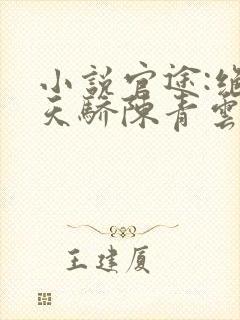 小説官途:绝
天驕陳青雲
王建厦